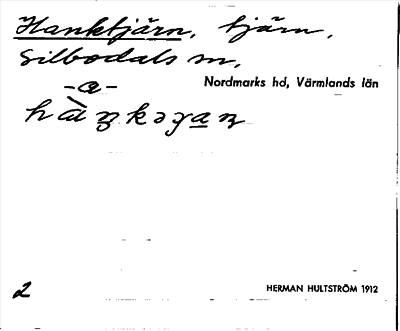 Hanktjärn, tjärn,
Silbodals sn,
Nordmarks hd, Värmlands län
-a-
2
HERMAN HULTSTRÖM 1912